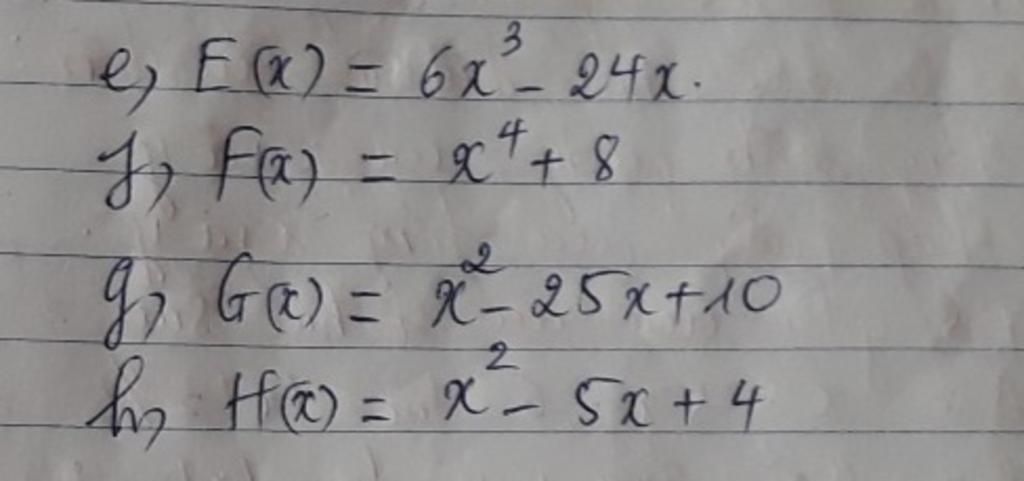 e, E(x) = 6x³ - 24x.
f, F(x) = x⁴ + 8
g, G(x) = x² - 25x + 10
h, H(x) = x² - 5x + 4